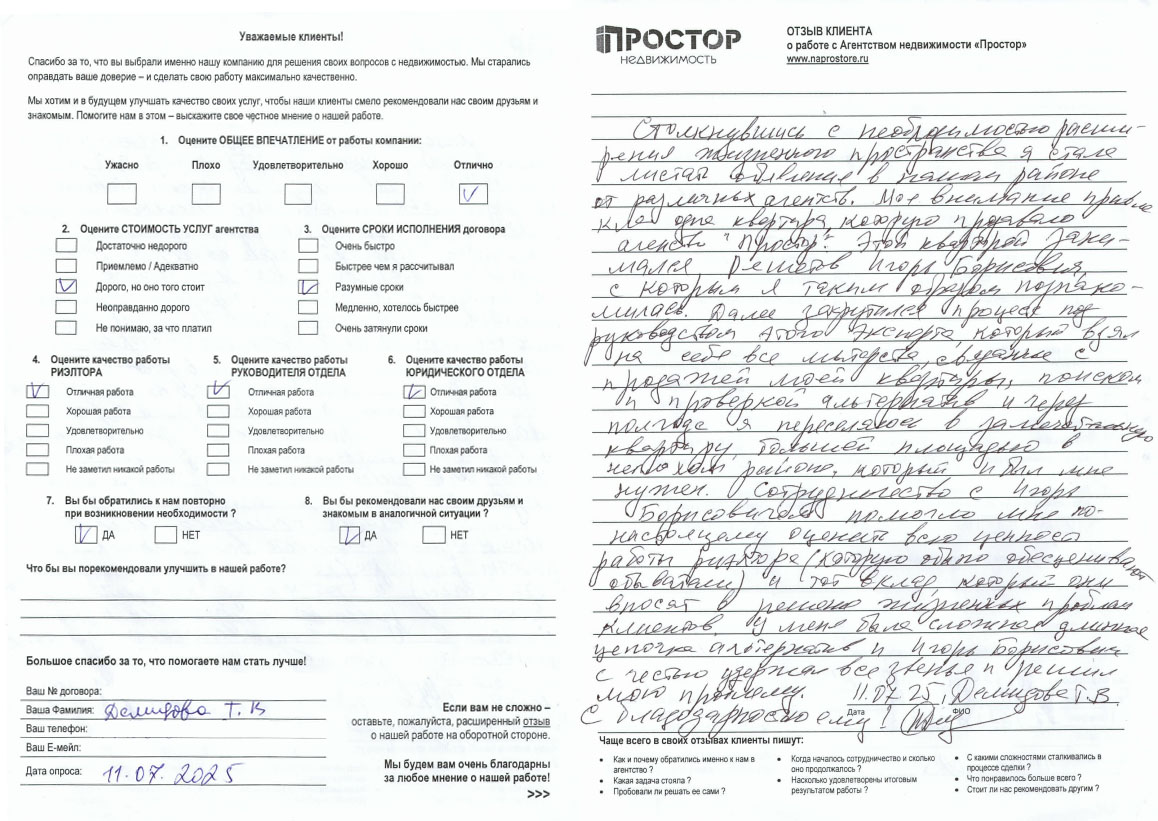 Уважаемые клиенты!
Спасибо за то, что вы выбрали именно нашу компанию для решения своих вопросов с недвижимостью. Мы старались
оправдать ваше доверие – и сделать свою работу максимально качественно.
Мы хотим и в будущем улучшать качество своих услуг, чтобы наши клиенты смело рекомендовали нас своим друзьям и
знакомым. Помогите нам в этом – выскажите свое честное мнение о нашей работе.
1. Оцените ОБЩЕЕ ВПЕЧАТЛЕНИЕ от работы компании:
Ужасно Плохо Удовлетворительно Хорошо Отлично
V
2. Оцените СТОИМОСТЬ УСЛУГ агентства
Достаточно недорого
Приемлемо / Адекватно
V Дорого, но оно того стоит
Неоправданно дорого
Не понимаю, за что платил
3. Оцените СРОКИ ИСПОЛНЕНИЯ договора
Очень быстро
Быстрее чем я рассчитывал
V Разумные сроки
Медленно, хотелось быстрее
Очень затянули сроки
4. Оцените качество работы
РИЭЛТОРА
V Отличная работа
Хорошая работа
Удовлетворительно
Плохая работа
Не заметил никакой работы
5. Оцените качество работы
РУКОВОДИТЕЛЯ ОТДЕЛА
V Отличная работа
Хорошая работа
Удовлетворительно
Плохая работа
Не заметил никакой работы
6. Оцените качество работы
ЮРИДИЧЕСКОГО ОТДЕЛА
V Отличная работа
Хорошая работа
Удовлетворительно
Плохая работа
Не заметил никакой работы
7. Вы бы обратились к нам повторно
при возникновении необходимости ?
V ДА НЕТ
8. Вы бы рекомендовали нас своим друзьям и
знакомым в аналогичной ситуации ?
V ДА НЕТ
Что бы вы порекомендовали улучшить в нашей работе?
Большое спасибо за то, что помогаете нам стать лучше!
Ваш № договора:
Ваша Фамилия: Демидова Т. В
Ваш телефон:
Ваш Е-мейл:
Дата опроса: 11.07.2025
Если вам не сложно –
оставьте, пожалуйста, расширенный отзыв
о нашей работе на оборотной стороне.
Мы будем вам очень благодарны
за любое мнение о нашей работе!
>>>
ПРОСТОР
НЕДВИЖИМОСТЬ
ОТЗЫВ КЛИЕНТА
о работе с Агентством недвижимости «Простор»
www.naprostore.ru
Столкнувшись с необходимостью расши-
рения жизненного пространства я стала
листать объявления в нашем районе
от различных агентств. Мое внимание привле
кла одна квартира, которую продавало
агентство "Простор". Этой квартирой зани-
мался Решетов Игорь Борисович,
с которым я таким образом познако-
милась. Далее закрутился процесс под
руководством этого эксперта, который взял
на себя все мытарства, связанные с
продажей моей квартиры, поиском
и проверкой альтернатив и через
полгода я переселяюсь в замечательную
квартиру, большей площадью в
неплохом районе, который и был мне
нужен. Сотрудничество с Игорь
Борисовичем помогло мне по-
настоящему оценить всю ценность
работы риэлтора (которую обычно обесценивают
обыватели) и тот вклад, который они
вносят в решение жизненных проблем
клиентов. У меня была сложная длинная
цепочка альтернатив и Игорь Борисович
с честью удержал все звенья и решил
мою проблему. 11.07.25, Демидова Т. В.
Дата ФИО
С благодарностью ему!
Чаще всего в своих отзывах клиенты пишут:
• Как и почему обратились именно к нам в
агентство ?
• Какая задача стояла ?
• Пробовали ли решать ее сами ?
• Когда началось сотрудничество и сколько
оно продолжалось ?
• Насколько удовлетворены итоговым
результатом работы ?
• С какими сложностями сталкивались в
процессе сделки ?
• Что понравилось больше всего ?
• Стоит ли нас рекомендовать другим ?